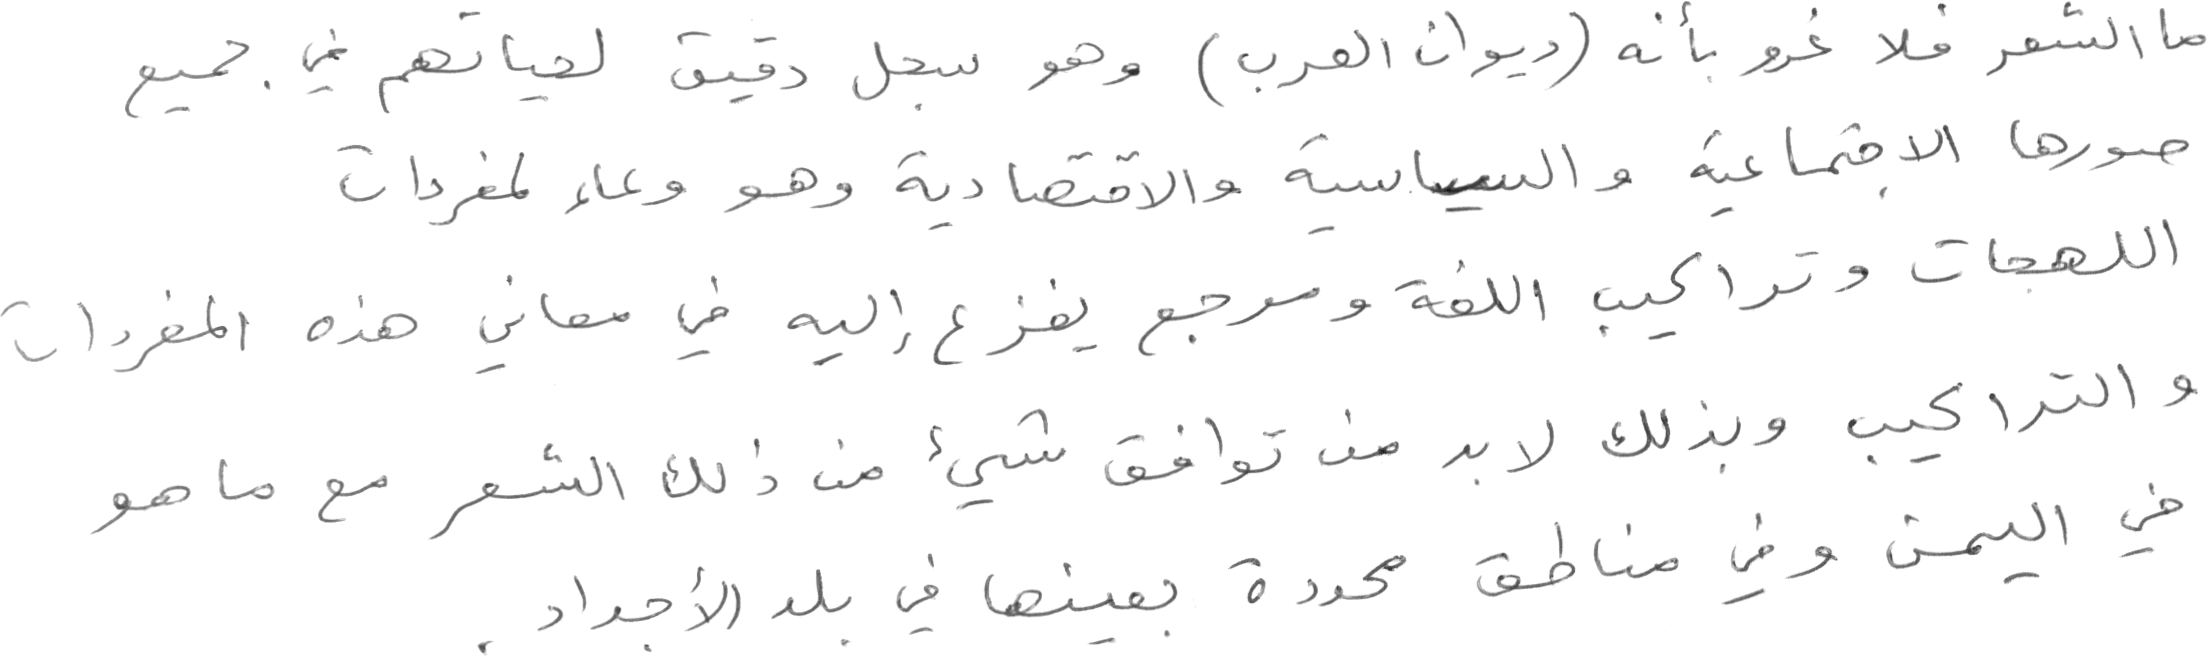 ما الشعر فلا غرو بأنه (ديوان العرب) وهو سجل دقيق لحياتهم في جميع
صورها الاجتماعية والسياسية والاقتصادية وهو وعاء لمفردات
اللهجات وتراكيب اللغة ومرجع يفزع إليه في معاني هذه المفردات
والتراكيب وبذلك لابد من توافق شيء من ذلك الشعر مع ما هو
في اليمن وفي مناطق محددة بعينها في بلد الأجداد .